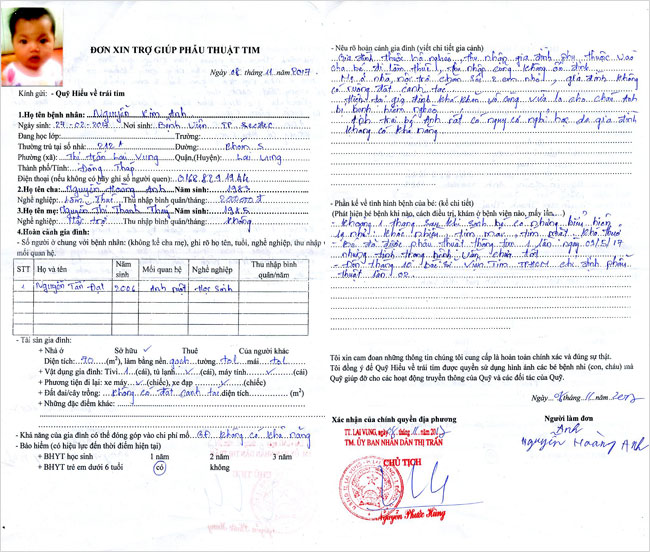 ĐƠN XIN TRỢ GIÚP PHẪU THUẬT TIM
Ngày 08 tháng 11 năm 2017
Kính gửi: - Quỹ Hiểu về trái tim
1.Họ tên bệnh nhân: Nguyễn Kim Anh
Ngày sinh: 27-02-2017 Nơi sinh: Bệnh Viện TP. Sađéc
Đang học lớp: Trường:
Thường trú tại số nhà: 212A Đường: Khóm 5
Phường (xã): Thị trấn Lai Vung Quận,(Huyện): Lai Vung
Thành phố/Tỉnh: Đồng Tháp
Điện thoại (nếu không có hãy ghi số người quen):
2.Họ tên cha: Nguyễn Hoàng Anh Năm sinh: 1983
Nghề nghiệp: Làm Thuê Thu nhập bình quân/tháng:
3.Họ tên mẹ: Nguyễn Thị Thanh Thúy Năm sinh: 1985
Nghề nghiệp: Nội trợ Thu nhập bình quân/tháng: Không
4.Hoàn cảnh gia đình:
- Số người ở chung với bệnh nhân: (không kể cha mẹ), ghi rõ họ tên, tuổi, nghề nghiệp, thu nhập
mối quan hệ.
STT Họ và tên Năm sinh Mối quan hệ Nghề nghiệp Thu nhập bình quân/năm
1 Nguyễn Tấn Đạt 2006 Anh ruột Học Sinh
- Tài sản gia đình:
+ Nhà ở Sở hữu ✓ Thuê Của người khác
Diện tích: 70 (m²), làm bằng nền gạch tường tol mái tol
+ Vật dụng gia đình: Tivi 1 (cái), tủ lạnh ✓ (cái), máy tính ✓ (cái)
+ Phương tiện đi lại: xe máy ✓ (chiếc), xe đạp ✓ (chiếc)
+ Đất đai/cây trồng: Không có đất canh tác diện tích (m²)
+ Những đặc điểm khác:
- Khả năng của gia đình có thể đóng góp vào chi phí mổ: GĐ không có khả năng
- Bảo hiểm (có hiệu lực đến thời điểm hiện tại)
+ BHYT học sinh 1 năm 2 năm 3 năm
+ BHYT trẻ em dưới 6 tuổi có không
- Nêu rõ hoàn cảnh gia đình (viết chi tiết gia cảnh)
Gia đình thuộc hộ nghèo, thu nhập gia đình phụ thuộc vào
cha bé đi làm thuê, thu nhập cũng không ổn định
Mẹ ở nhà nội trợ chăm sóc 2 em nhỏ, gia đình không
có ruộng đất canh tác.
Hiện tại gia đình khó khăn vô cùng vừa lo cho cháu Anh
bị bệnh hiểm nghèo
Anh trai bé Anh rất có nguy cơ nghỉ học do gia đình
không có khả năng
- Phần kể về tình hình bệnh của bé: (kể chi tiết)
(Phát hiện bé bệnh khi nào, cách điều trị, khám ở bệnh viện nào, mấy lần....)
- Khoảng 1 tháng sau khi sanh bé có những biểu hiện
lạ như: khóc nhiều, tím môi, tím mặt, khó thở
- Bé đã được phẫu thuật thông tim 1 lần ngày 03/5/17
nhưng tình trạng bệnh vẫn chưa tốt
- Đến tháng 10 bác sĩ Viện Tim TPHCM chỉ định phẫu
thuật lần 02.
Tôi xin cam đoan những thông tin chúng tôi cung cấp là hoàn toàn chính xác và đúng sự thật.
Tôi đồng ý để Quỹ Hiểu về trái tim được quyền sử dụng hình ảnh các bé bệnh nhi (con, cháu) mà
Quỹ giúp đỡ cho các hoạt động truyền thông của Quỹ và các đối tác của Quỹ.
Ngày 08 / 11 / 2017
Xác nhận của chính quyền địa phương
TT. LAI VUNG, ngày 08 tháng 11 năm 2017
TM. ỦY BAN NHÂN DÂN THỊ TRẤN
CHỦ TỊCH
Nguyễn Phước Hùng
Người làm đơn
Anh
Nguyễn Hoàng Anh